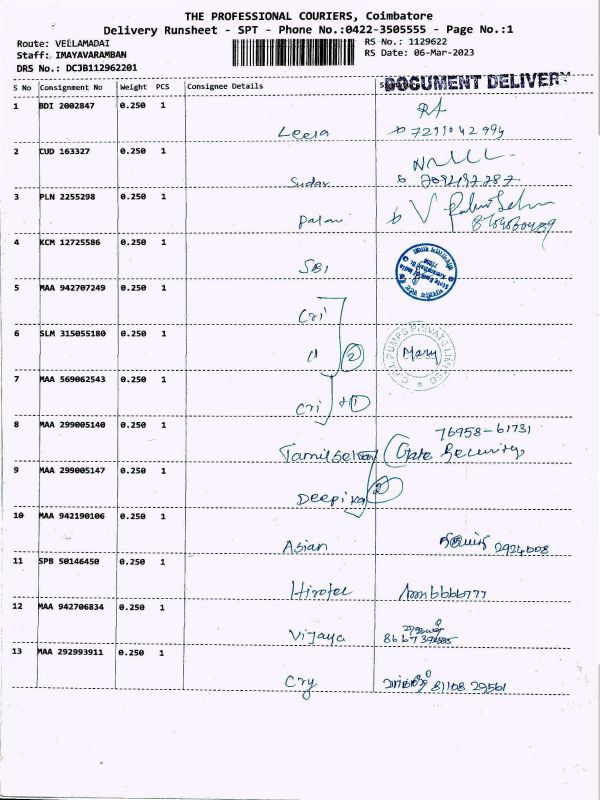 THE PROFESSIONAL COURIERS, Coimbatore
Delivery Runsheet - SPT - Phone No.:0422-3505555 - Page No.:1
Route: VELLAMADAI RS No.: 1129622
Staff: IMAYAVARAMBAN RS Date: 06-Mar-2023
DRS No.: DCJB112962201
S No Consignment No Weight PCS Consignee Details DOCUMENT DELIVERY
1 BDI 2002847 0.250 1
Leela
2 CUD 163327 0.250 1
3 PLN 2255298 0.250 1
4 KCM 12725586 0.250 1
SBI
5 MAA 942707249 0.250 1
Cri
6 SLM 315055180 0.250 1
11 2 Mary
7 MAA 569062543 0.250 1
Cri +1
8 MAA 299005140 0.250 1 76958-61731
Tamilselvan Gate Security
9 MAA 299005147 0.250 1
Deepika 2
10 MAA 942190106 0.250 1
Asian 2924008
11 SPB 50146450 0.250 1
12 MAA 942706834 0.250 1
Vijaya
13 MAA 292993911 0.250 1
Cry 81108 29561